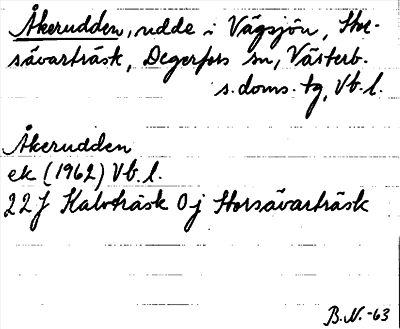 Åkerudden, udde i Vägsjön, Stor-
sävarträsk, Degerfors sn, Västerb.
s. doms. tg, Vb. l.
Åkerudden
ek (1962) Vb. l.
22 J Kalvträsk 0 j Storsävarträsk
B.N. -63